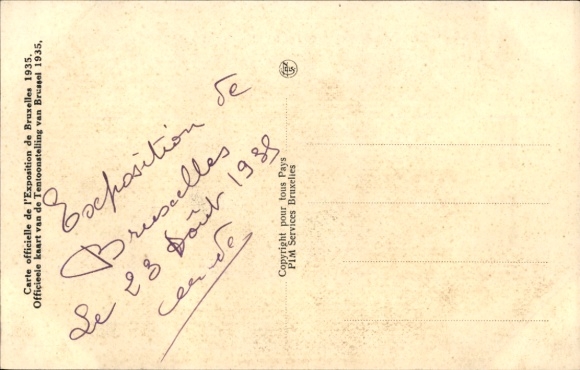 Carte officielle de l'Exposition de Bruxelles 1935.
Officieele kaart van de Tentoonstelling van Brussel 1935.
Exposition de
Bruxelles
Le 23 Août 1935
Copyright pour tous Pays
PIM Services Bruxelles